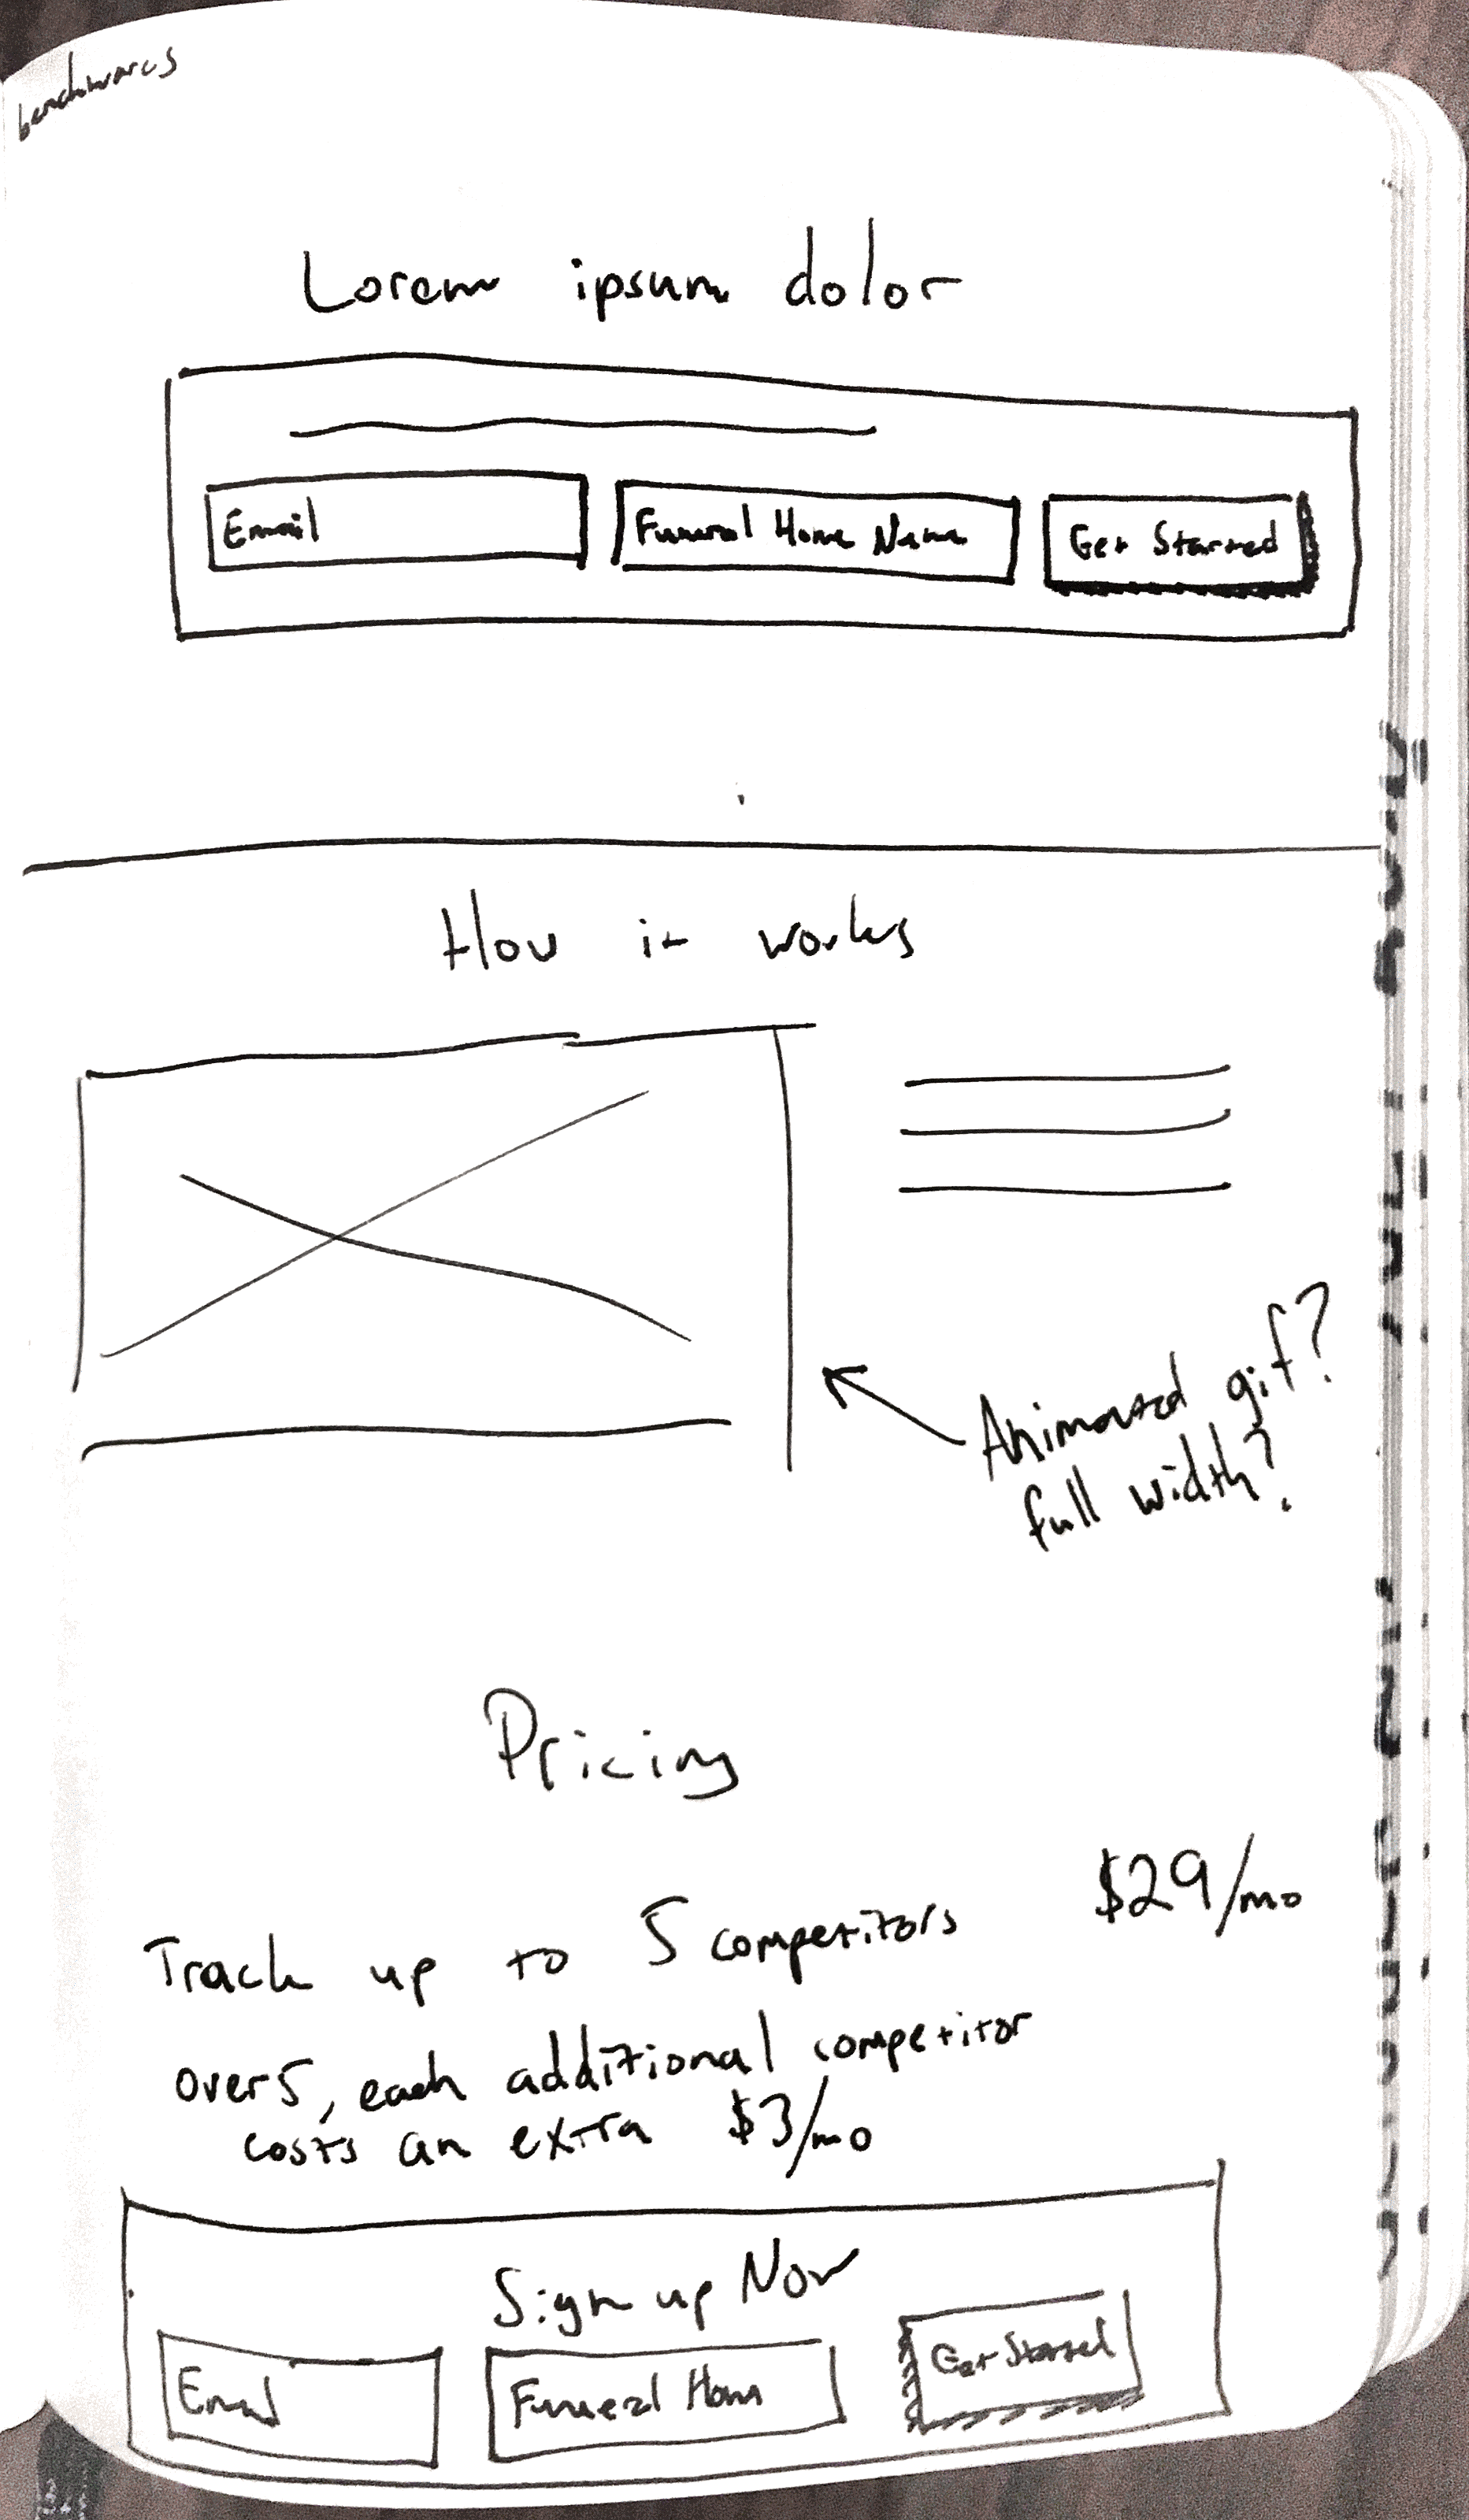 benchmarks
Lorem ipsum dolor
Email
Funeral Home Name
Get Started
How it works
Animated gif?
full width?
Pricing
Track up to 5 competitors $29/mo
over 5, each additional competitor
costs an extra $3/mo
Sign up Now
Email
Funeral Home
Get Started